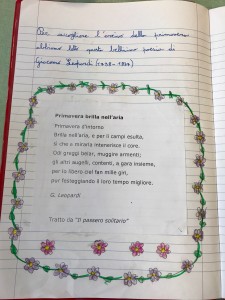 Per accogliere l'arrivo della primavera
abbiamo letto questa bellissima poesia di
Giacomo Leopardi (1798-1837)
Primavera brilla nell'aria
Primavera d'intorno
Brilla nell'aria, e per li campi esulta,
sì che a mirarla intenerisce il core.
Odi greggi belar, muggire armenti;
gli altri augelli, contenti, a gara insieme,
per lo libero ciel fan mille giri,
pur festeggiando il loro tempo migliore.
G. Leopardi
Tratto da "Il passero solitario"